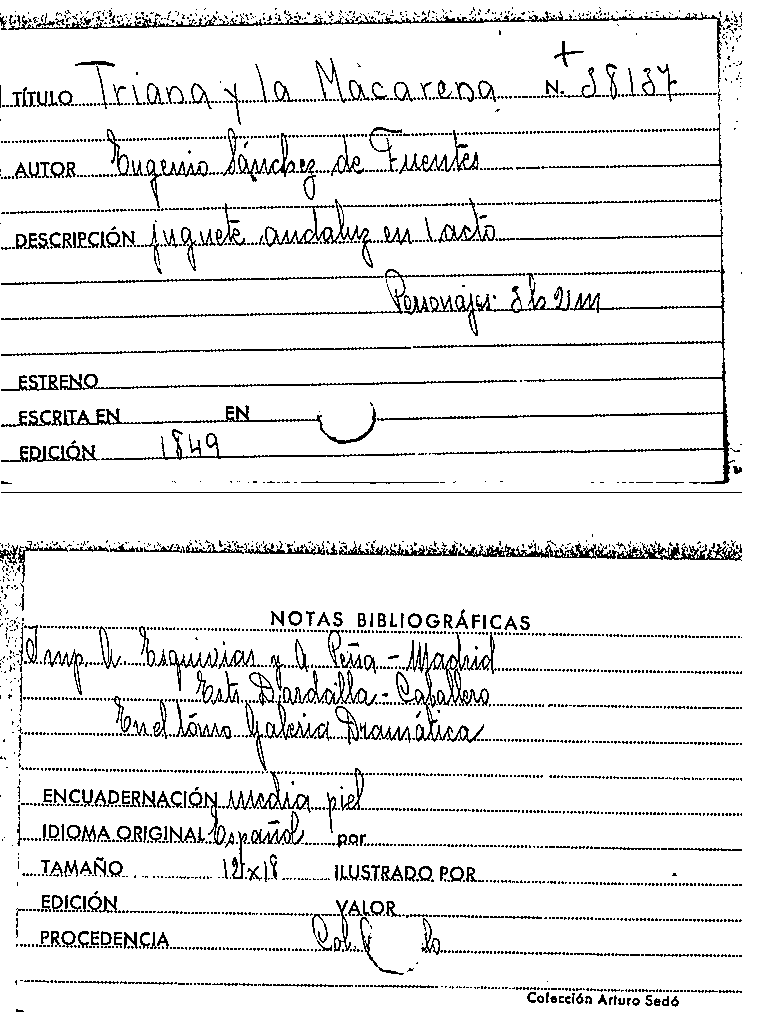 TÍTULO Triana y la Macarena N. 38137
AUTOR Eugenio Sánchez de Fuentes
DESCRIPCIÓN juguete andaluz en 1 acto
Personajes: 3 h 2 m
ESTRENO
ESCRITA EN EN
EDICIÓN 1849
NOTAS BIBLIOGRÁFICAS
Imp. A. Esquivias y A. Peña - Madrid
Caballero
En el tómo Galeria Dramática
ENCUADERNACIÓN media piel
IDIOMA ORIGINAL Español por
TAMAÑO 12x18 ILUSTRADO POR
EDICIÓN VALOR
PROCEDENCIA Col.
Colección Arturo Sedó